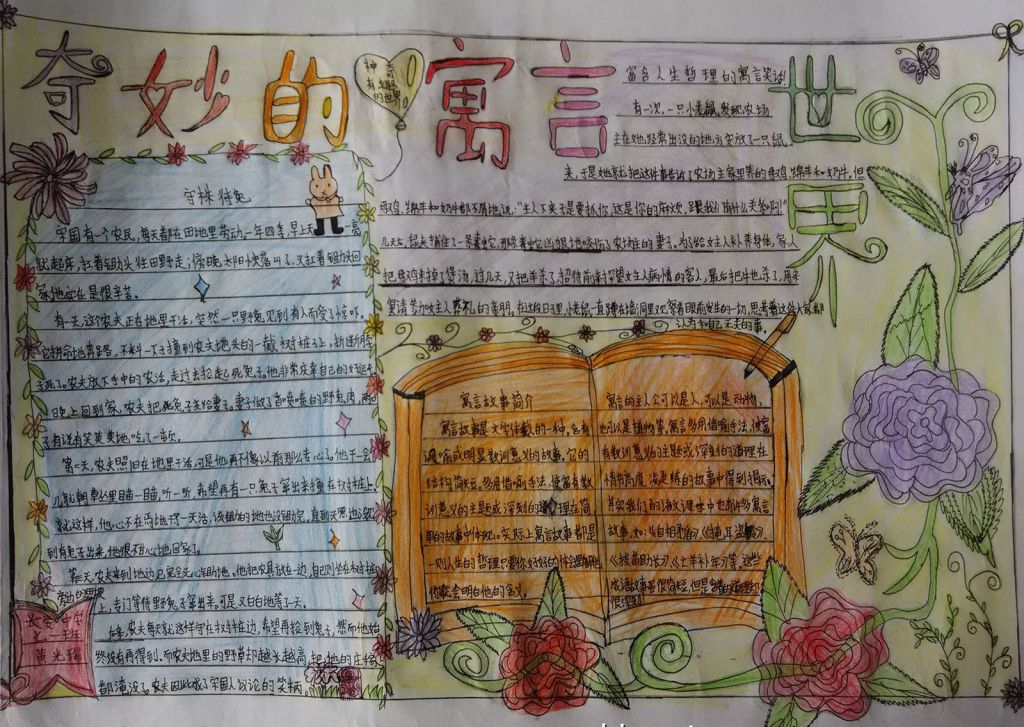 奇妙的寓言世界
神奇
有趣
的世界
富含人生哲理的寓言笑话
有一次,一只小老鼠发现农场
主在她经常出没的地方安放了一只鼠
夹,于是她就把这件事告诉了农场主家里养的母鸡、绵羊和奶牛,但
母鸡、绵羊和奶牛都不屑地说:"主人下夹子是要抓你,这是你的麻烦,跟我们有什么关系啊!"
几天后,鼠夹捕住了一条毒蛇,那条毒蛇凶狠地咬伤了农场主的妻子,为了给女主人补养身体,家人
把母鸡杀掉了煲汤,过几天,又把羊杀了,招待前来探望女主人病情的客人,最后把牛也杀了,用来
宴请参加女主人葬礼的亲朋。在这段日子里,小老鼠一直蹲在墙洞里观察着眼前发生的一切,思考着这些大家都
认为与自己无关的事。
守株待兔
宋国有一个农民,每天都在田地里劳动,一年四季,早上天一亮
就起床,扛着锄头往田野走;傍晚太阳快落山了,又扛着锄头回
家,他实在是很辛苦。
有一天,这个农夫正在地里干活,突然一只野兔见到有人而受了惊吓。
它拼命地奔跑,不料一下子撞到农夫地头的一截树桩子上,折断脖
子死了。农夫放下手中的农活,走过去捡起死兔子。他非常庆幸自己的好运气。
晚上回到家,农夫把死兔子交给妻子。妻子做了香喷喷的野兔肉,两口
子有说有笑美美地吃了一顿。
第二天,农夫照旧在地里干活,可是他再不像以前那么专心了。他干一会
儿就朝草丛里瞄一瞄,听一听,希望再有一只兔子窜出来撞在树桩上。
就这样,他心不在焉地干了一天活,该锄的地也没锄完。直到天黑也没见
到有兔子出来,他很不甘心地回家了。
第三天,农夫来到地边,已完全无心锄地。他把农具放在一边,自己则坐在树桩旁
上,专门等待野兔子窜出来。可是又白白地等了一天。
后来,农夫每天就这样守在树桩边,希望再捡到兔子,然而他始
终没有再得到。而农夫地里的野草却越长越高,把他的庄稼
都淹没了。农夫因此成了宋国人议论的笑柄。
一班
黄光瑞
寓言故事简介
寓言故事是文学体裁的一种,含有
讽喻或明显教训意义的故事,它的
结构简短,多用借喻手法,使富有教
训意义的主题或深刻的道理在简
单的故事中体现。实际上寓言故事都是
一则人生的哲理,只要你好好的体会
你就会明白他的含义。
寓言的主人公可以是人,可以是动物,
也可以是植物等,寓言多用借喻手法,使富
有教训意义的主题或深刻的道理在
精炼的故事中得到揭示。
其实我们的语文课本中也有许多寓言
故事,如:《自相矛盾》、《掩耳盗铃》、
《拔苗助长》《亡羊补牢》等,这些
成语故事虽很简短,但是含有的道理却
很深刻!